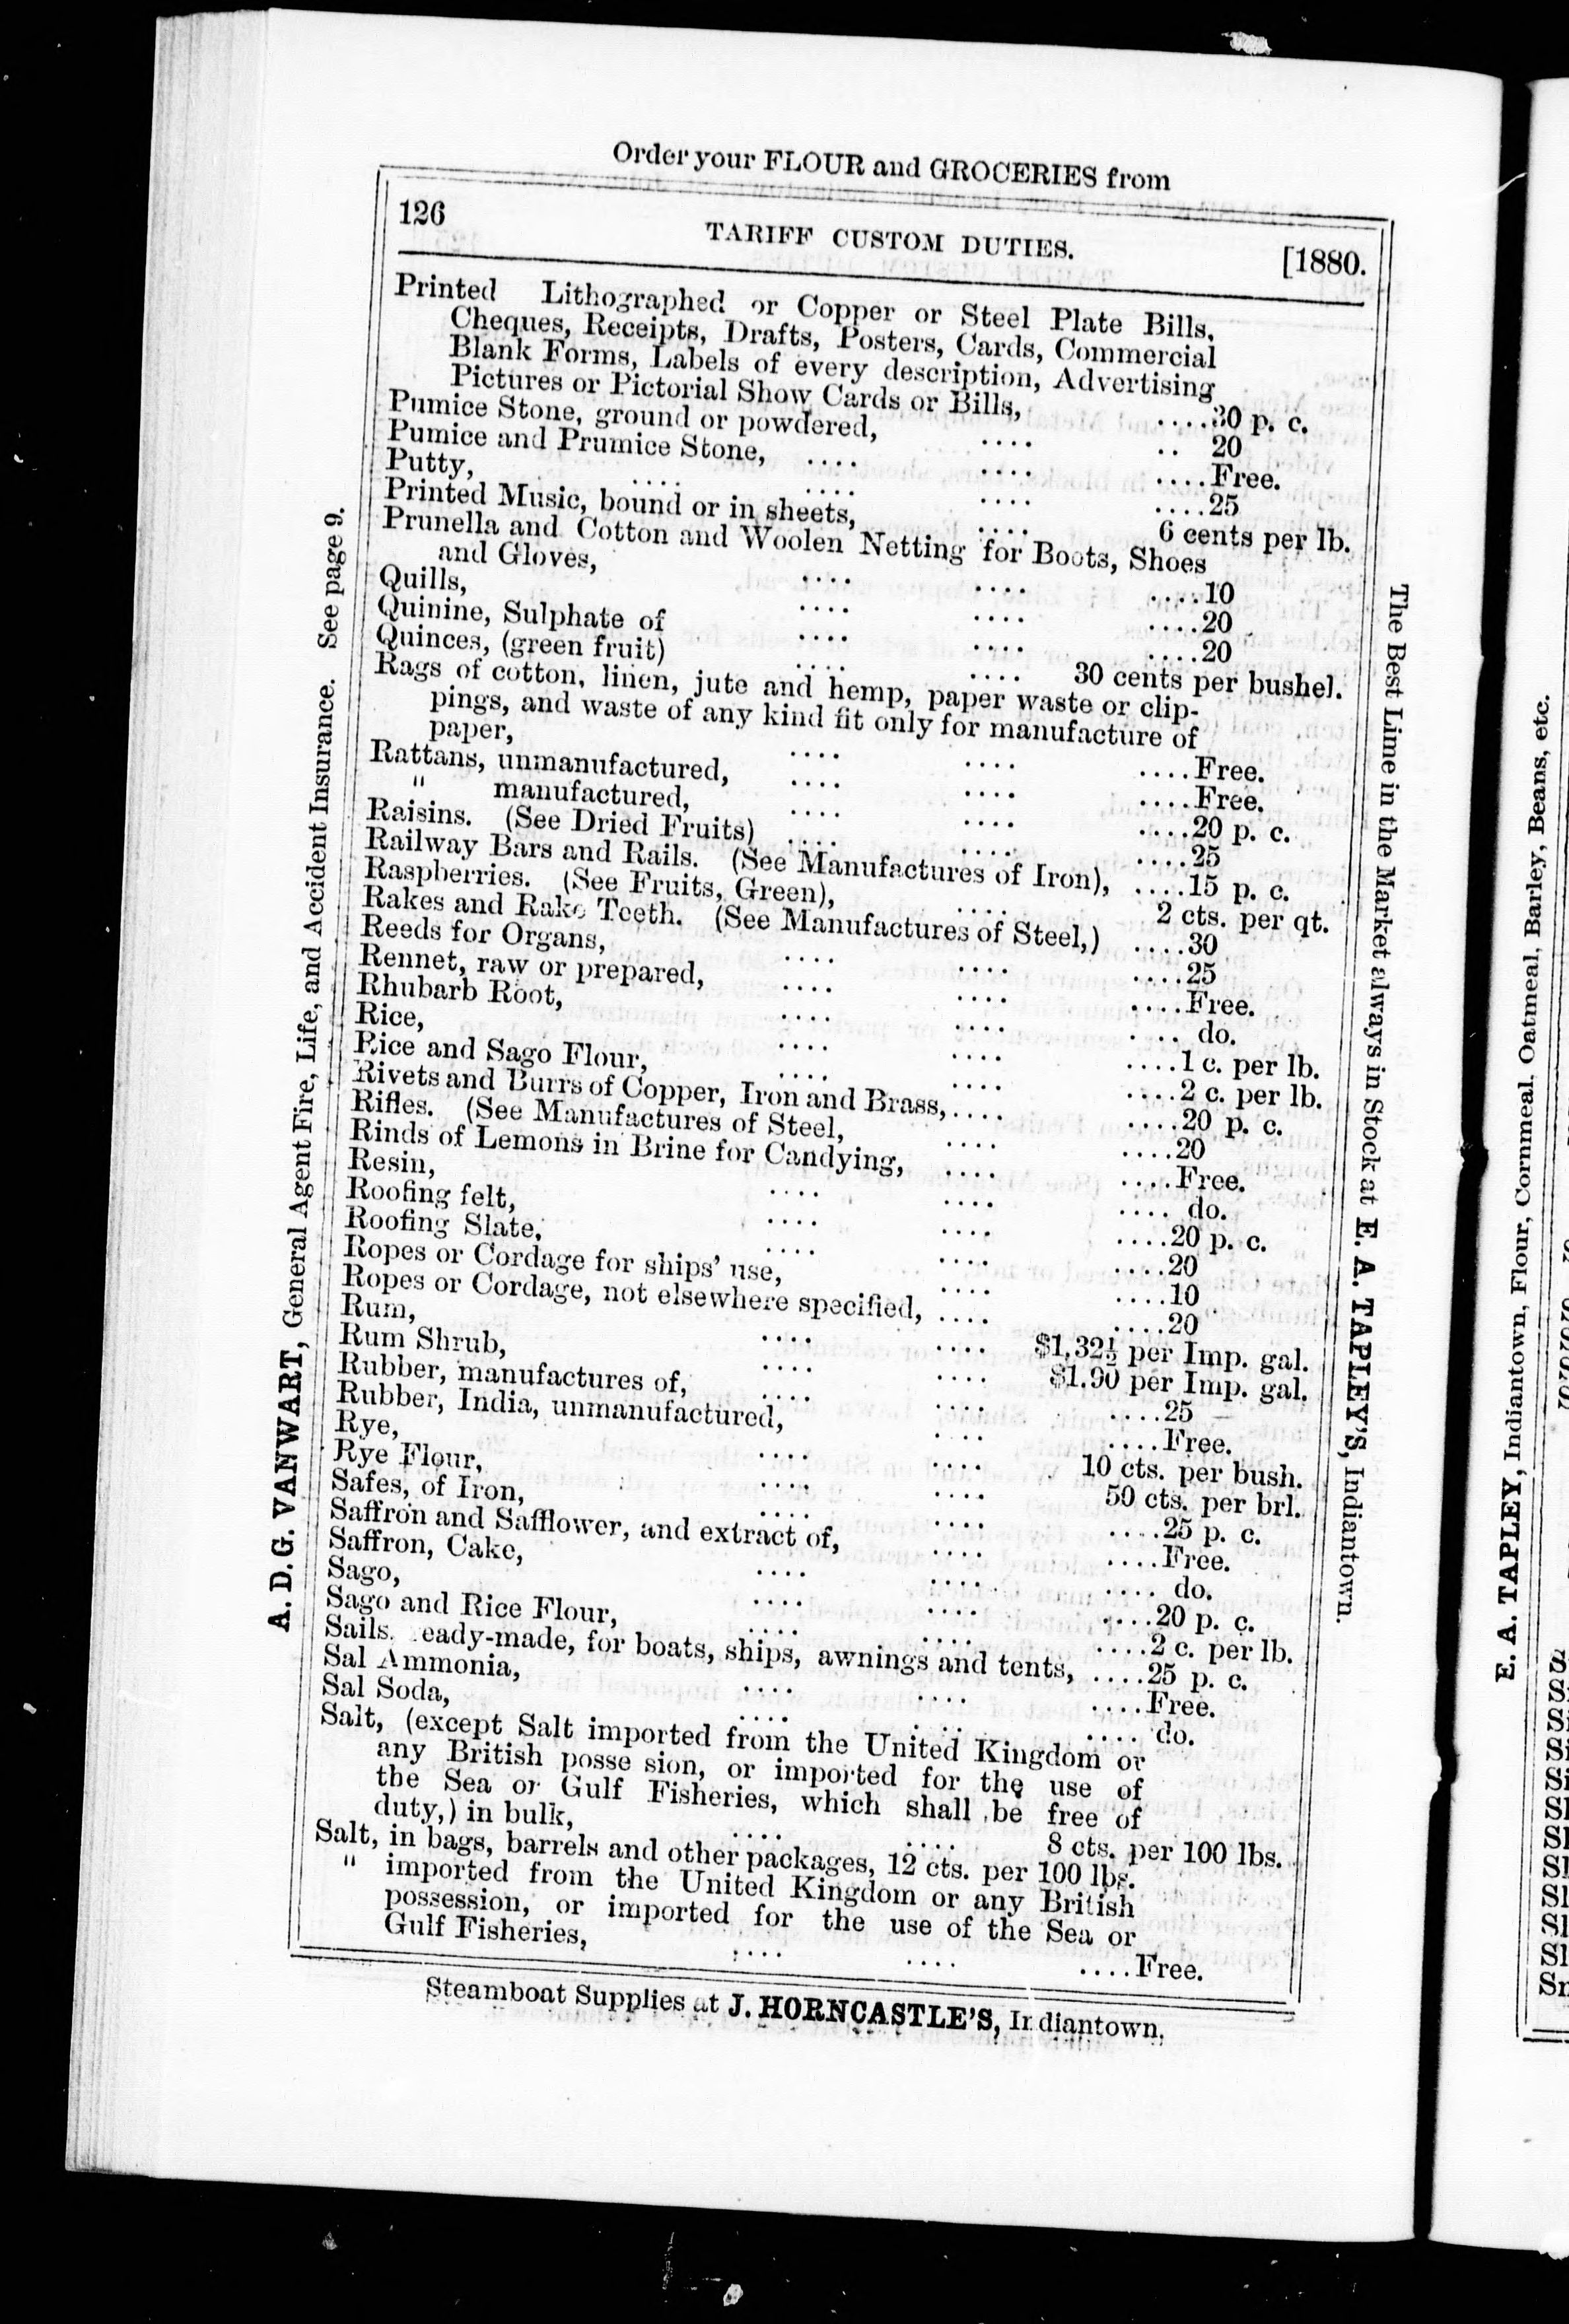 Order your FLOUR and GROCERIES from
126 TARIFF CUSTOM DUTIES. [1880.
Printed Lithographed or Copper or Steel Plate Bills,
Cheques, Receipts, Drafts, Posters, Cards, Commercial
Blank Forms, Labels of every description, Advertising
Pictures or Pictorial Show Cards or Bills, ....30 p. c.
Pumice Stone, ground or powdered, .... .. 20
Pumice and Prumice Stone, .... .... ....Free.
Putty, .... .... .... ....25
Printed Music, bound or in sheets, .... 6 cents per lb.
Prunella and Cotton and Woolen Netting for Boots, Shoes
and Gloves, .... .... ....10
Quills, .... .... ....20
Quinine, Sulphate of .... .... ....20
Quinces, (green fruit) .... .... 30 cents per bushel.
Rags of cotton, linen, jute and hemp, paper waste or clip-
pings, and waste of any kind fit only for manufacture of
paper, .... .... ....Free.
Rattans, unmanufactured, .... .... ....Free.
" manufactured, .... .... ....20 p. c.
Raisins. (See Dried Fruits) .... .... ....25
Railway Bars and Rails. (See Manufactures of Iron), ....15 p. c.
Raspberries. (See Fruits, Green), .... 2 cts. per qt.
Rakes and Rake Teeth. (See Manufactures of Steel,) ....30
Reeds for Organs, .... .... ....25
Rennet, raw or prepared, .... .... ....Free.
Rhubarb Root, .... .... .... do.
Rice, .... .... ....1 c. per lb.
Rice and Sago Flour, .... .... ....2 c. per lb.
Rivets and Burrs of Copper, Iron and Brass,.... ....20 p. c.
Rifles. (See Manufactures of Steel, .... ....20
Rinds of Lemons in Brine for Candying, .... ....Free.
Resin, .... .... .... do.
Roofing felt, .... .... ....20 p. c.
Roofing Slate, .... .... ....20
Ropes or Cordage for ships' use, .... ....10
Ropes or Cordage, not elsewhere specified, .... ....20
Rum, .... .... $1.32½ per Imp. gal.
Rum Shrub, .... .... $1.90 per Imp. gal.
Rubber, manufactures of, .... .... ....25
Rubber, India, unmanufactured, .... ....Free.
Rye, .... .... 10 cts. per bush.
Rye Flour, .... .... 50 cts. per brl.
Safes, of Iron, .... .... ....25 p. c.
Saffron and Safflower, and extract of, .... ....Free.
Saffron, Cake, .... .... .... do.
Sago, .... .... ....20 p. c.
Sago and Rice Flour, .... .... ....2 c. per lb.
Sails. eady-made, for boats, ships, awnings and tents, ....25 p. c.
Sal Ammonia, .... .... ....Free.
Sal Soda, .... .... .... do.
Salt, (except Salt imported from the United Kingdom or
any British posse sion, or imported for the use of
the Sea or Gulf Fisheries, which shall be free of
duty,) in bulk, .... .... 8 cts. per 100 lbs.
Salt, in bags, barrels and other packages, 12 cts. per 100 lbs.
" imported from the United Kingdom or any British
possession, or imported for the use of the Sea or
Gulf Fisheries, .... .... ....Free.
Steamboat Supplies at J. HORNCASTLE'S, Indiantown.
A. D. G. VANWART, General Agent Fire, Life, and Accident Insurance. See page 9.
The Best Lime in the Market always in Stock at E. A. TAPLEY'S, Indiantown.
E. A. TAPLEY, Indiantown, Flour, Cornmeal, Oatmeal, Barley, Beans, etc.